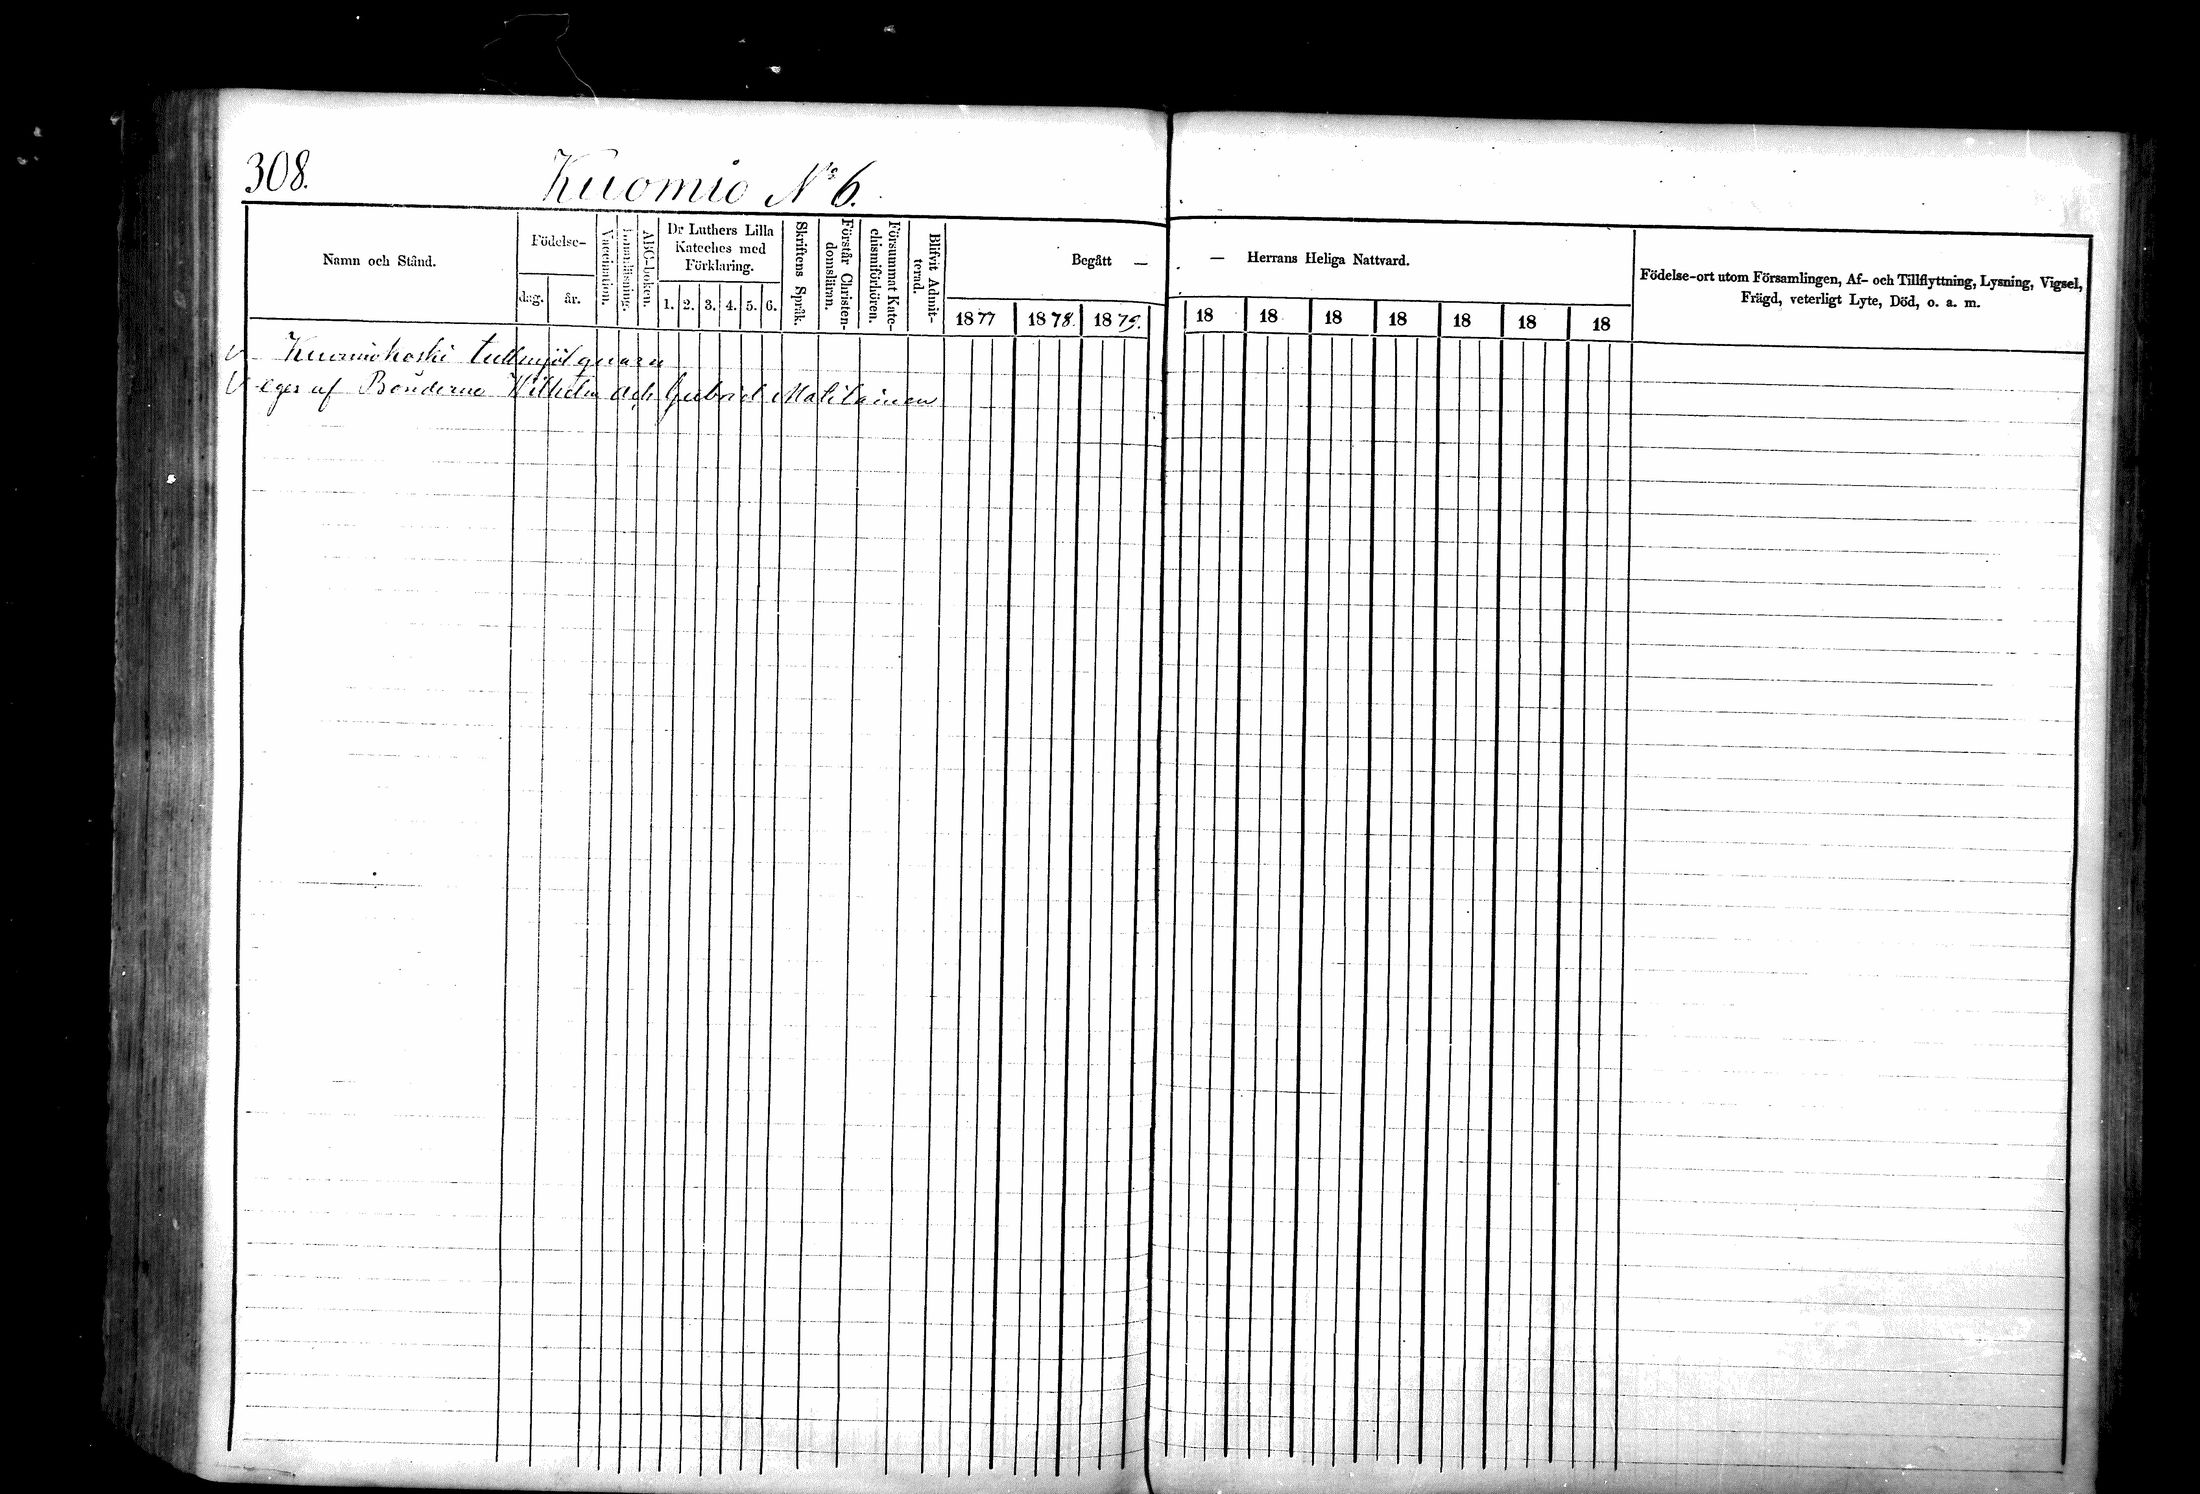 308.
Kuomio N:o 6.
Namn och Stånd.
Födelse-
dag.
år.
Vaccination.
Innanläsning.
ABC-boken.
Dr Luthers Lilla
Kateches med
Förklaring.
1. 2. 3. 4. 5. 6.
Skriftens Språk.
Förstår Christen-
domsläran.
Försummat Kate-
chismiförhören.
Blifvit Admit-
terad.
Begått —
1877 1878. 1879.
— Herrans Heliga Nattvard.
18 18 18 18 18 18 18
Födelse-ort utom Församlingen, Af- och Tillflyttning, Lysning, Vigsel,
Frägd, veterligt Lyte, Död, o. a. m.
Kuomiokoski tullmjölqvarn
eges af Bönderne Wilhelm och Gabriel Matilainen